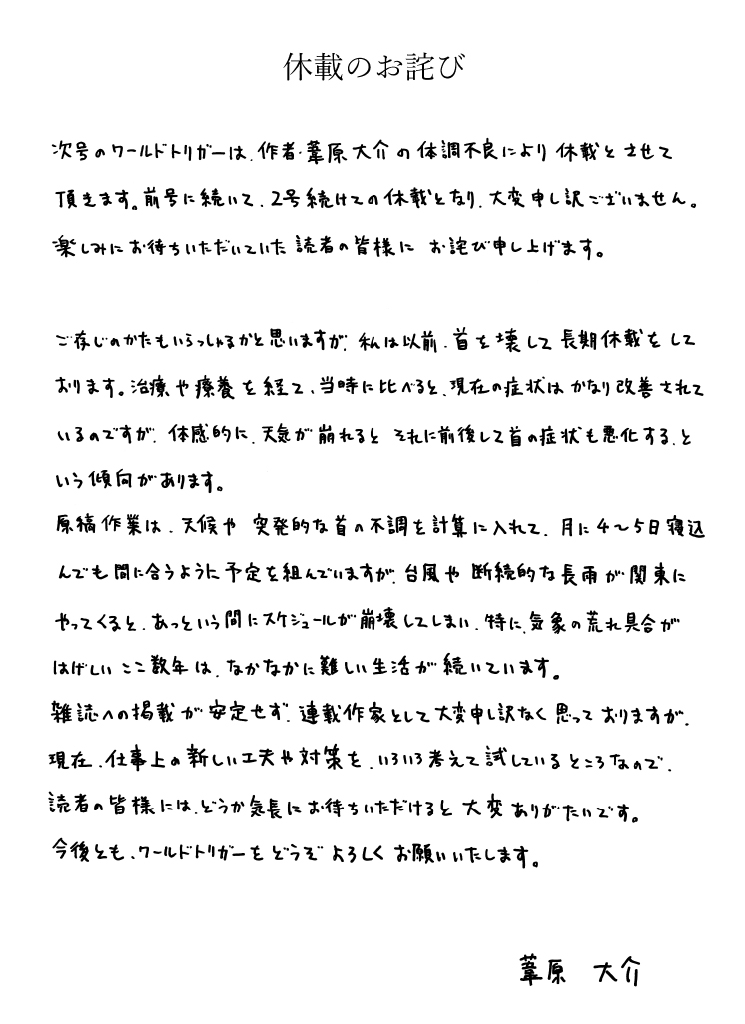 休載のお詫び
次号のワールドトリガーは、作者・葦原大介の体調不良により休載とさせて
頂きます。前号に続いて、2号続けての休載となり、大変申し訳ございません。
楽しみにお待ちいただいていた読者の皆様に お詫び申し上げます。
ご存じのかたもいらっしゃるかと思いますが、私は以前、首を壊して長期休載をして
おります。治療や療養を経て、当時に比べると、現在の症状はかなり改善されて
いるのですが、体感的に、天気が崩れると それに前後して首の症状も悪化する、と
いう傾向があります。
原稿作業は、天候や 突発的な首の不調を計算に入れて、月に4〜5日寝込
んでも間に合うように予定を組んでいますが、台風や 断続的な長雨が関東に
やってくると、あっという間にスケジュールが崩壊してしまい、特に、気象の荒れ具合が
はげしい ここ数年は、なかなかに難しい生活が続いています。
雑誌への掲載が安定せず、連載作家として大変申し訳なく思っておりますが、
現在、仕事上の新しい工夫や対策を、いろいろ考えて試しているところなので、
読者の皆様には、どうか気長にお待ちいただけると 大変ありがたいです。
今後とも、ワールドトリガーをどうぞよろしくお願いいたします。
葦原 大介